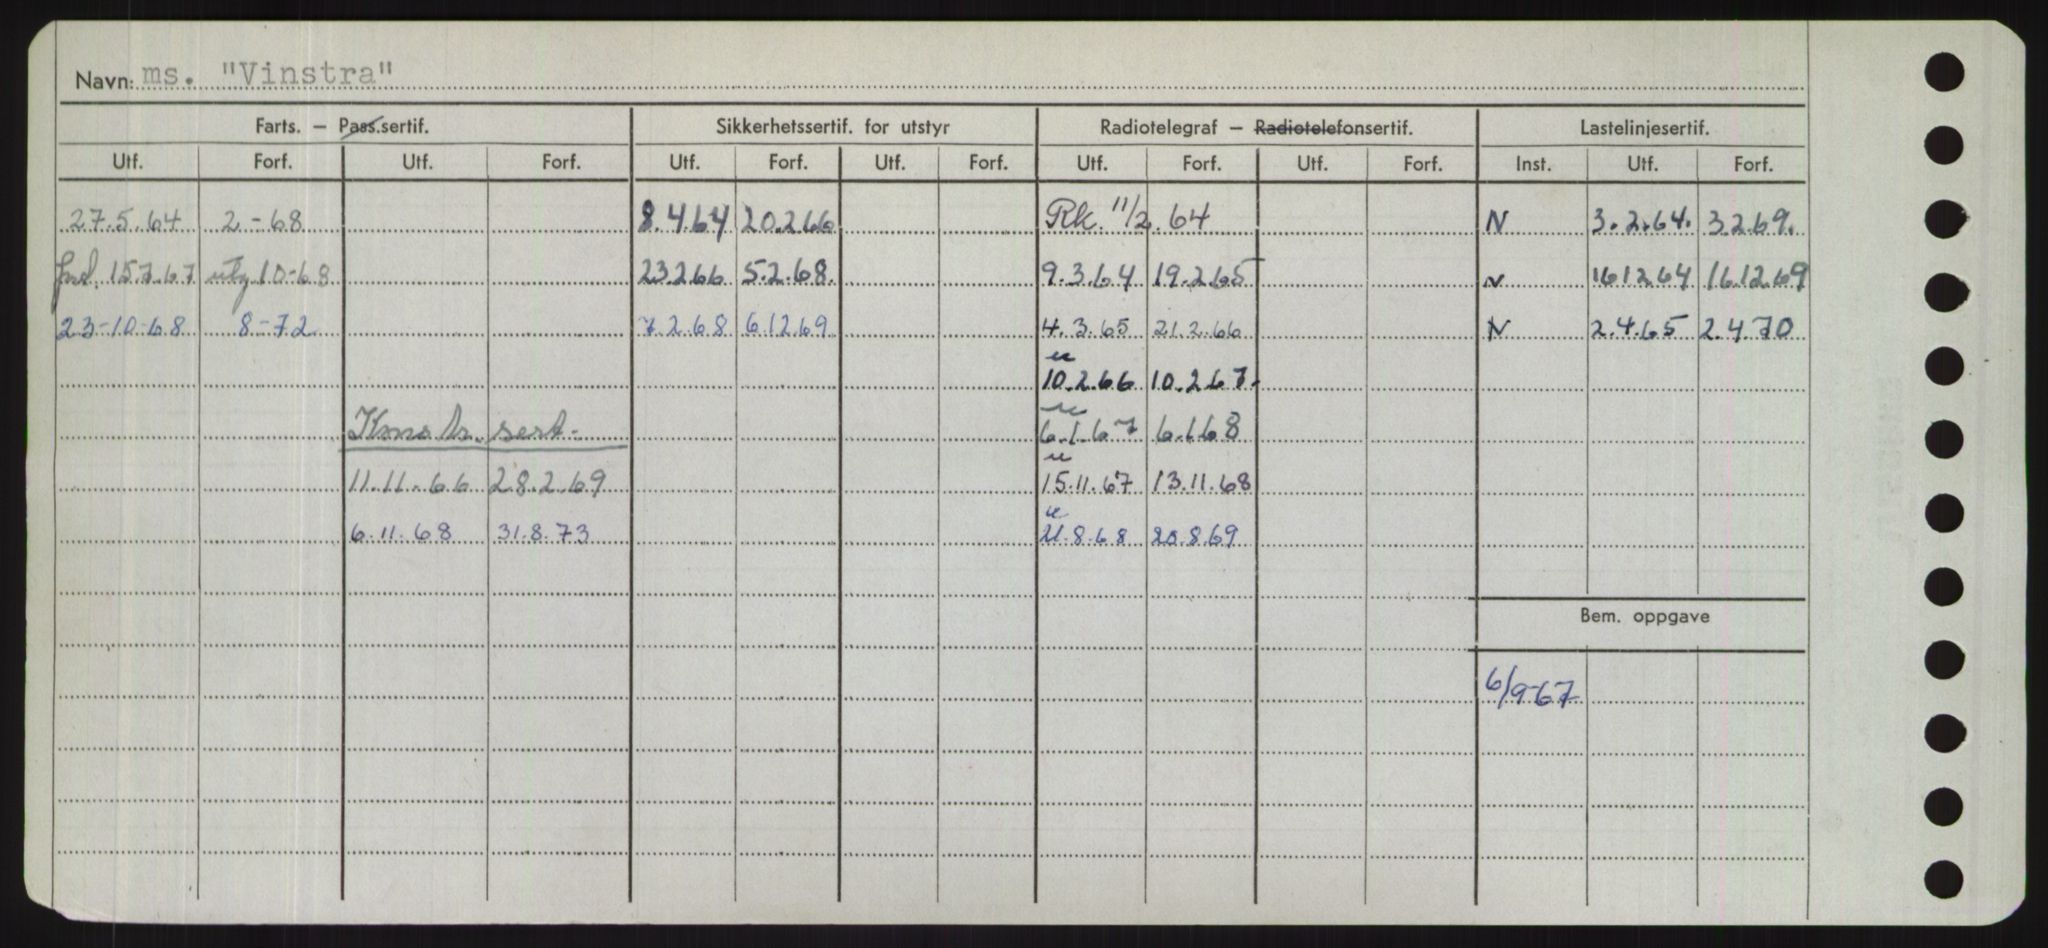 Navn: ms. "Vinstra"
Farts. – Pass.sertif. Sikkerhetssertif. for utstyr Radiotelegraf – Radiotelefonsertif. Lastelinjesertif.
Utf. Forf. Utf. Forf. Utf. Forf. Utf. Forf. Utf. Forf. Utf. Forf. Inst. Utf. Forf.
27.5.64 2-68 8.4.64 20.2.66 Rk. 11/2.64 N 3.2.64. 3.2.69.
15.7.67 utg 10-68 23.2.66 5.2.68. 9.3.64 19.2.65 N 16.12.64 16.12.69
23-10-68 8-72 7.2.68 6.12.69 4.3.65 21.2.66 N 2.4.65 2.4.70
u
10.2.66 10.2.67.
Konstr. sert. u
6.1.67 6.1.68
u
11.11.66 28.2.69 15.11.67 13.11.68
u
6.11.68 31.8.73 21.8.68 20.8.69
Bem. oppgave
6/9-67